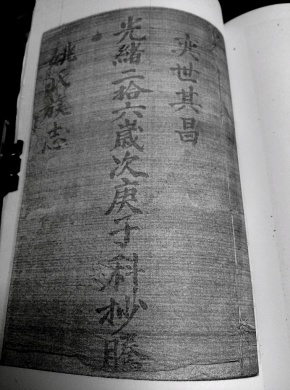 奕世其昌
光緒二拾六歲次庚子科抄謄
姚氏族志